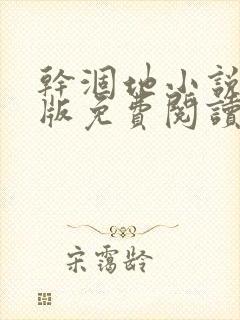 幹涸地小說
版免費閱讀
宋靄齡